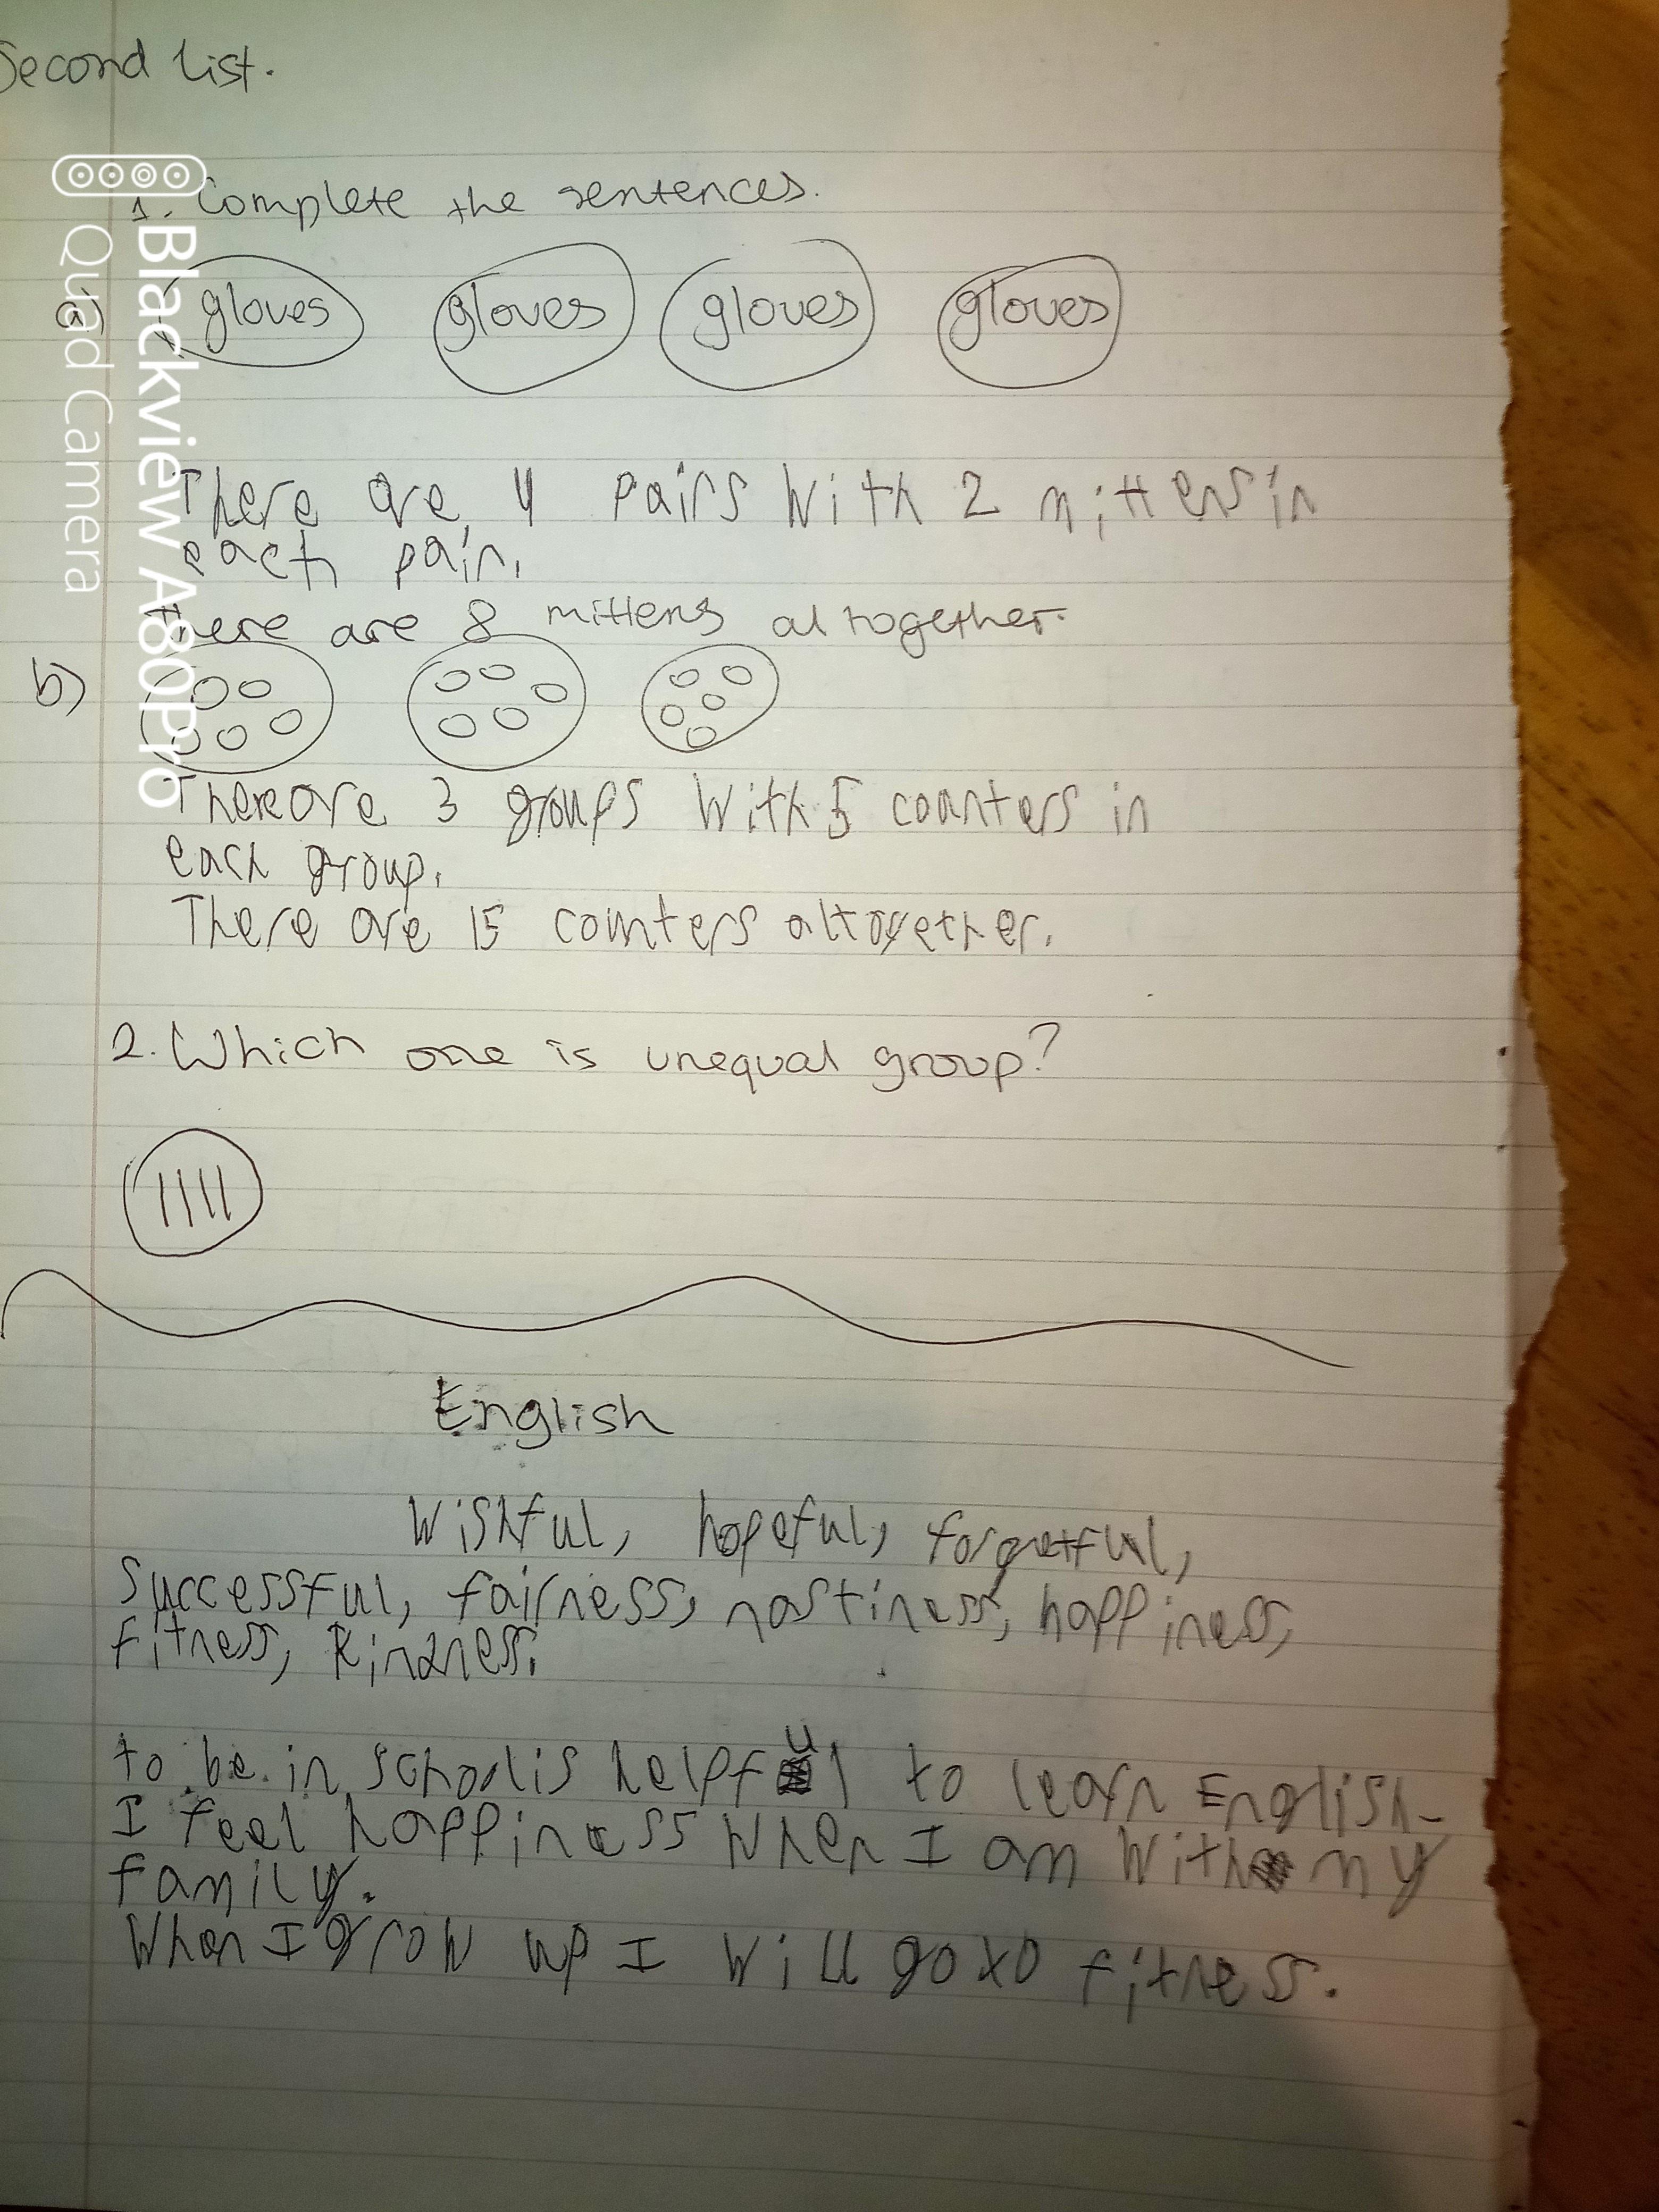 Second list.
1. Complete the sentences.
a) gloves gloves gloves gloves
There are 4 pairs with 2 mittens in
each pair.
there are 8 mittens altogether.
b)
There are 3 groups with 5 counters in
each group.
There are 15 counters altogether.
2. Which one is unequal group?
English
Wishful, hopeful, forgetful,
Successful, fairness, nastiness, happiness,
Fitness, Kindness.
to be in school is helpful to learn English.
I feel happiness when I am with my
family.
When I grow up I will go to fitness.
Blackview A80Pro
Quad Camera